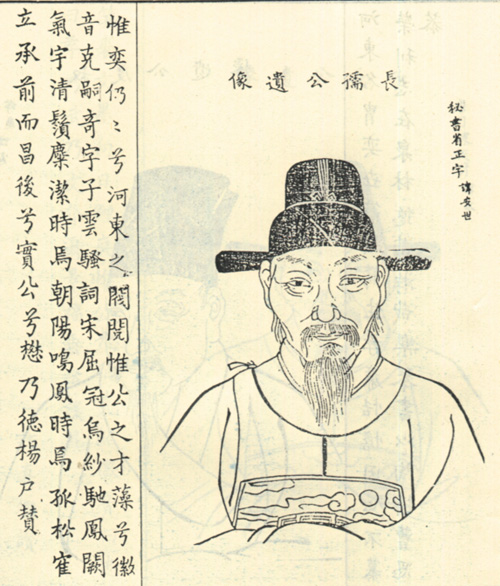 秘書省正字 諱安世
長孺公遺像
惟奕仍〻兮河東之閥閱惟公之才藻兮徽
音克嗣奇字子雲騷詞宋屈冠烏紗馳鳳闕
氣宇清鬚麋潔時焉朝陽鳴鳳時焉孤松寉
立承前而昌後兮實公兮懋乃德楊戶賛